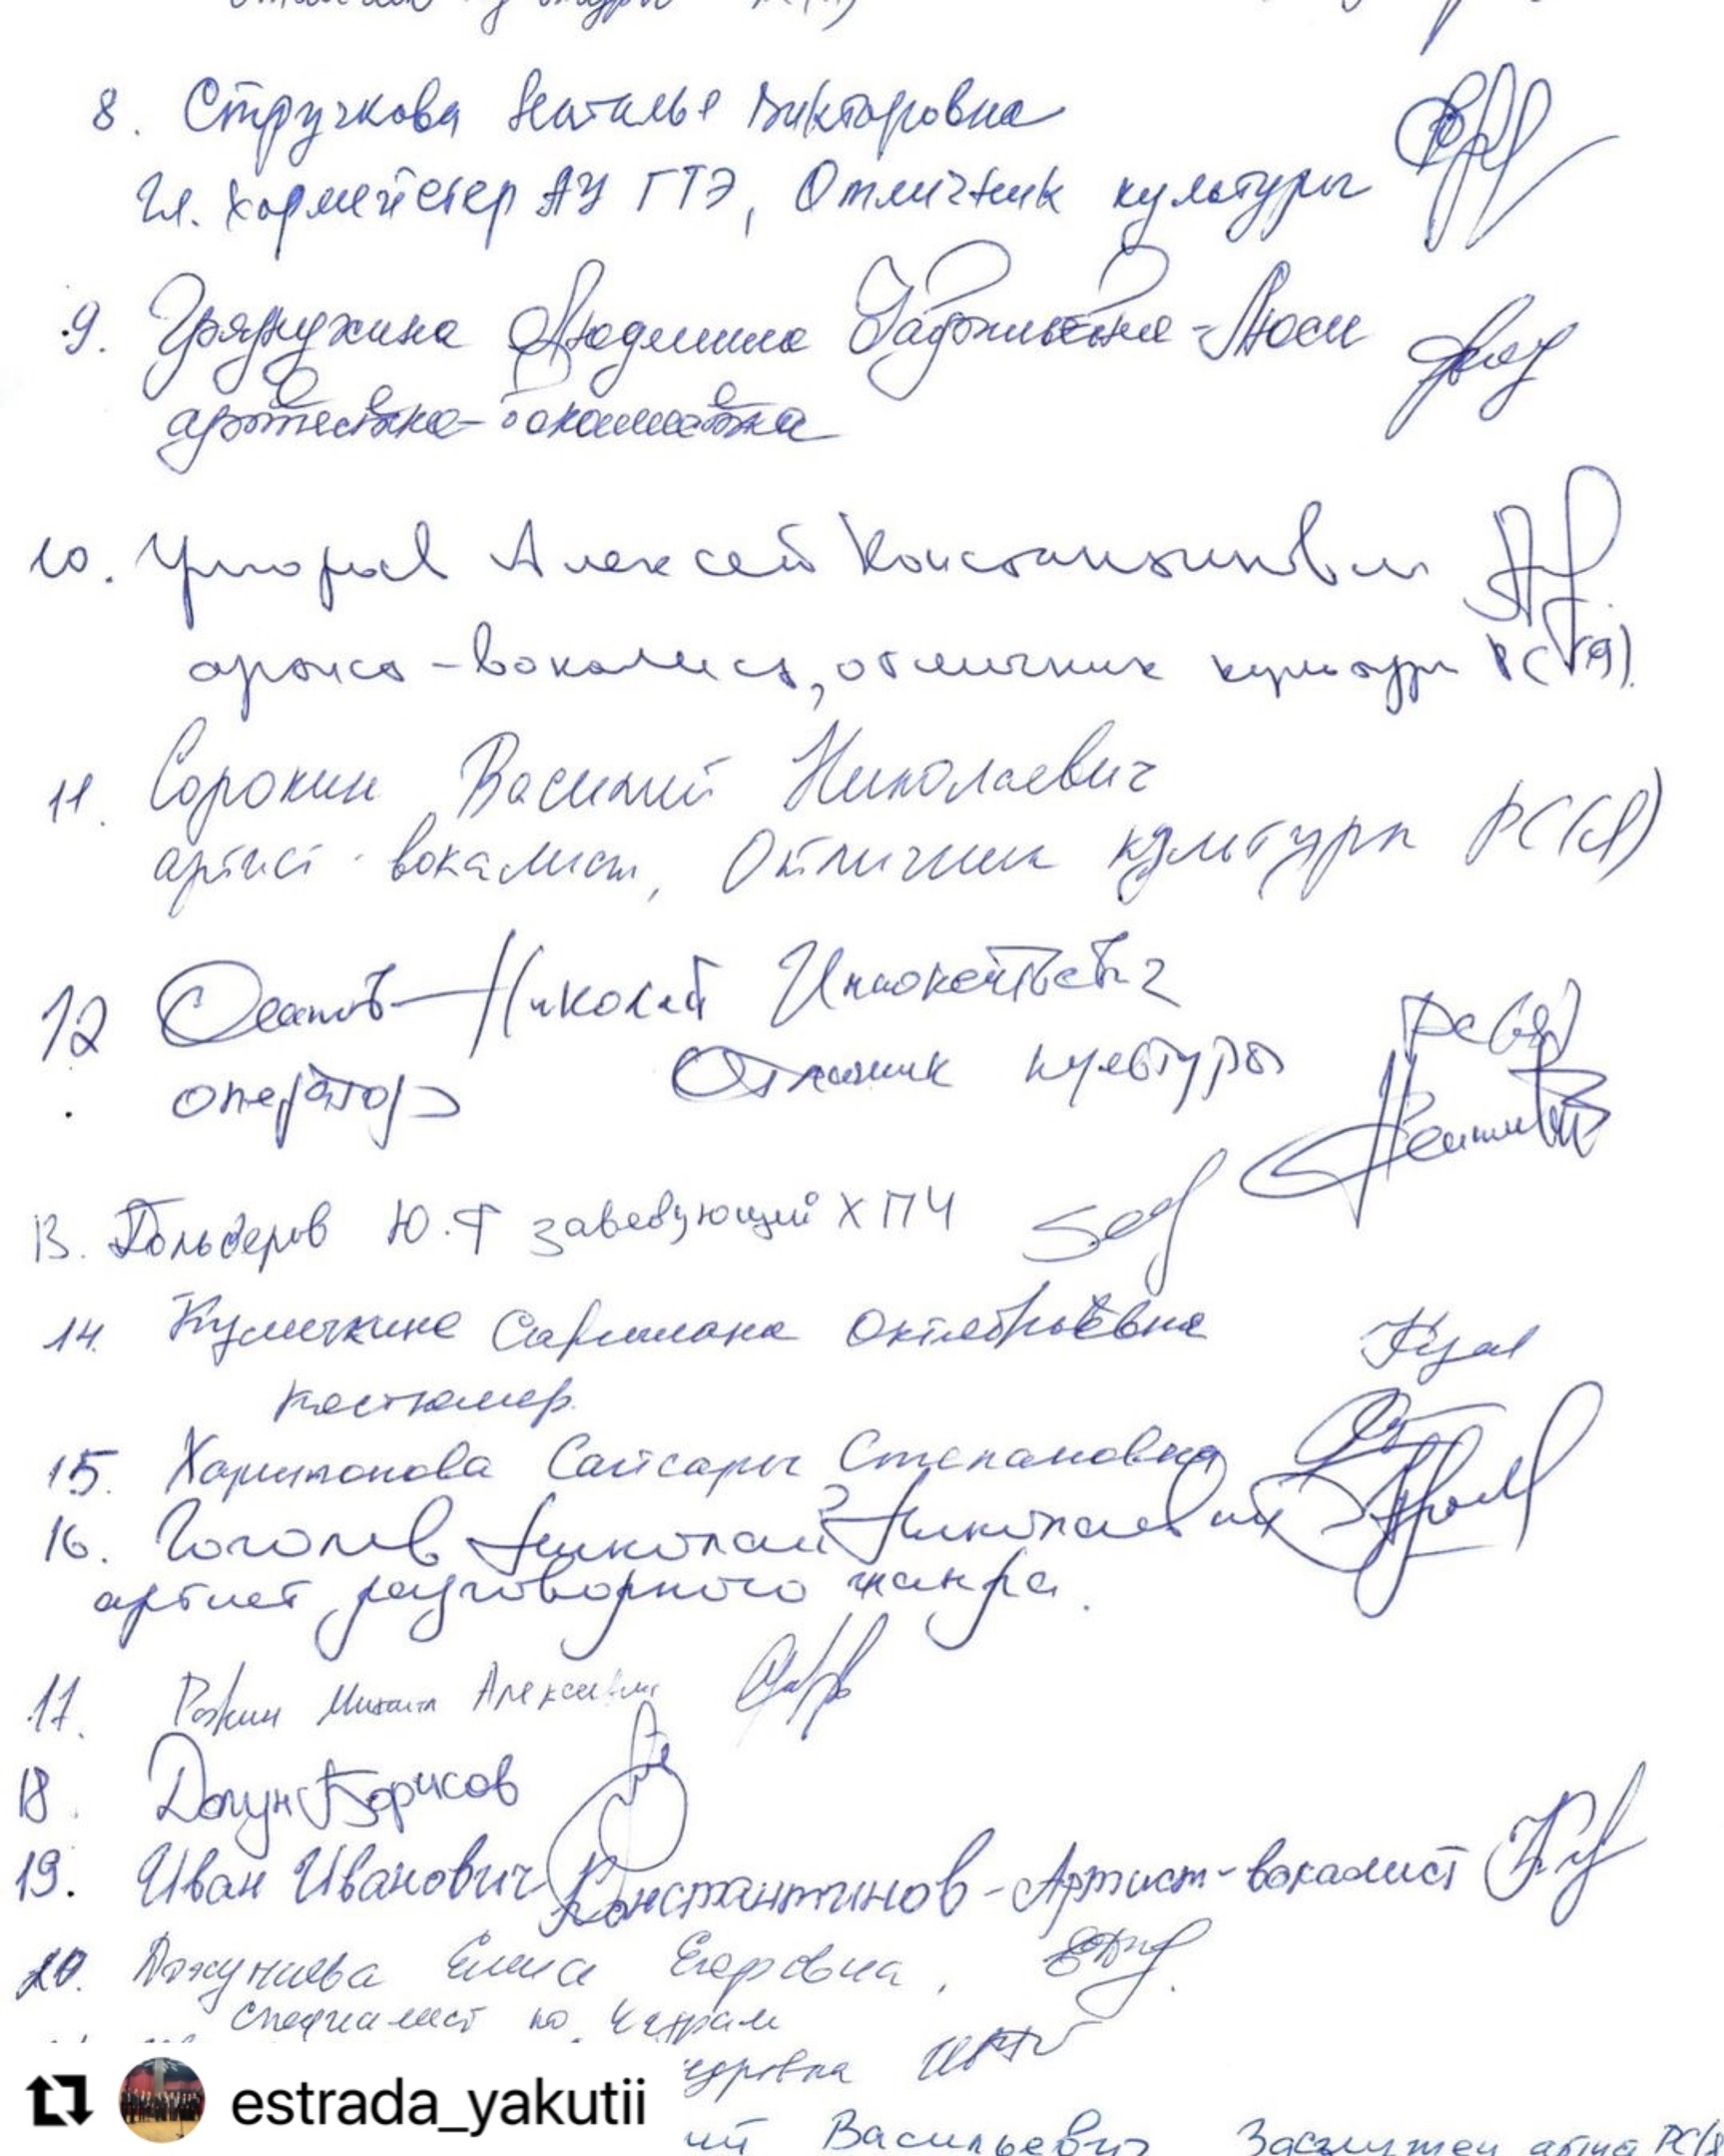 8. Стручкова Наталья Викторовна
Гл. хормейстер АУ ГТЭ, Отличник культуры
9. Людмила -Люси
артистка-вокалистка
10. Алексей Константинович
артист-вокалист, отличник культуры РС(Я).
11. Сорокин Василий Николаевич
артист-вокалист, Отличник культуры РС(Я)
12 Николай Иннокентьевич
оператор Отличник культуры РС(Я)
13. Гольдеров Ю.Ф заведующий ХПЧ
14. Кузьмичкина Сардаана Октябрьевна
костюмер.
15. Харитонова Сайсары Степановна
16. Гоголев Николай Николаевич
артист разговорного жанра.
17. Рожин Михаил Алексеевич
18. Борисов
19. Иван Иванович Константинов - Артист-вокалист
20. Елена Егоровна,
специалист по кадрам
estrada_yakutii
Васильевич РС(Я